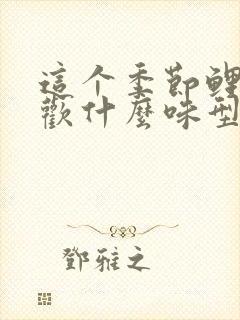 這个季節鯉
歡什麼味型
鄧雅之